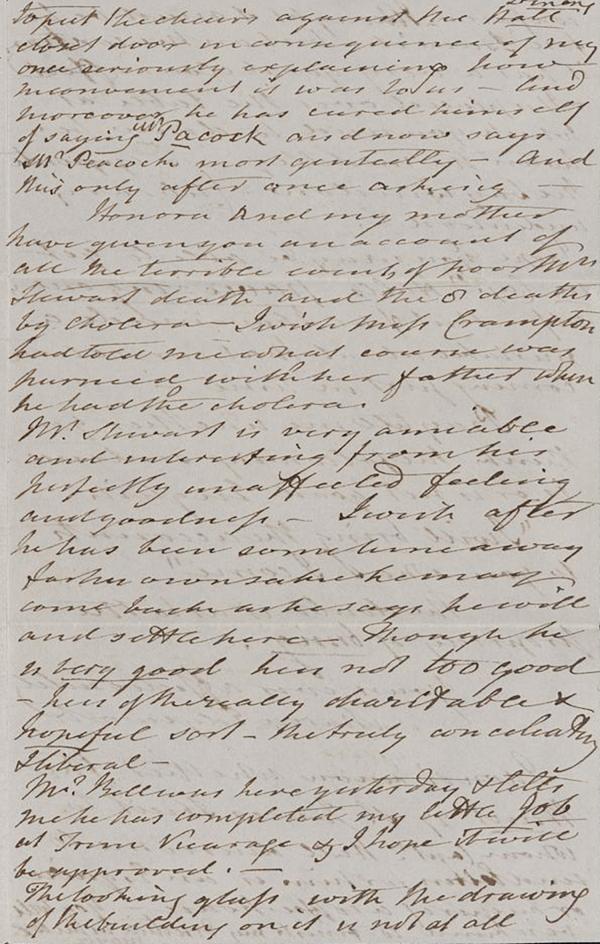 to put the chairs against the Hall
closet door in consequence of my
once seriously explaining how
inconvenient it was to us – And
moreover he has cured himself
of saying Mr Pacock and now says
Mr Peacocke most genteelly – And
this only after once asking —
Honora and my mother
have given you an account of
all the terrible events of poor Mrs
Stewart death and the 8 deaths
by cholera – I wish Miss Crampton
had told me what course was
pursued with her father when
he had the cholera.
Mr. Stewart is very amiable
and interesting from his
perfectly unaffected feeling
and goodness. – I wish after
he has been sometime away
for his own sake he may
come back as he says he will
and settle here – Though he
is very good he is not too good
– he is of the really charitable &
hopeful sort – the truly conciliating
& liberal –
Mr. Bell was here yesterday & tells
me he has completed my little job
at Trim Vicarage & I hope it will
be approved. —
The looking glass with the drawing
of the building on it is not at all